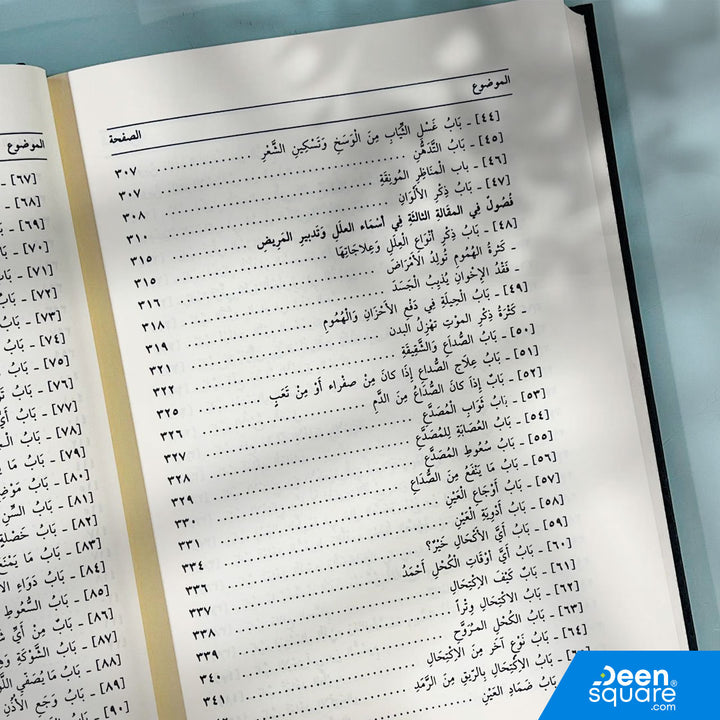 الموضوع الصفحة
[٤٤] ـ بَابُ غَسْلِ الثِّيَابِ مِنَ الْوَسَخِ وَتَسْكِينِ الشَّعْرِ ............ ٣٠٧
[٤٥] ـ بَابُ التَّدَهُّنِ ............ ٣٠٧
[٤٦] ـ باب الْمَناظِرِ المُونِقَةِ ............ ٣٠٨
[٤٧] ـ بَابُ ذِكْرِ الأَلْوَانِ ............ ٣١٠
فُصُولٌ فِي المقَالَةِ الثالثَة فِي أَسْمَاء العِلَلِ وَتَدبير المَرِيض ............ ٣١٥
[٤٨] ـ بَابُ ذِكْرِ أَنْوَاعِ الْعِلَلِ وَعِلاجَاتِهَا ............ ٣١٥
ـ كَثرةُ الهُمُومِ تُولِدُ الأَمْرَاضَ ............ ٣١٦
ـ فَقْدُ الإِخوانِ يُذِيبُ الْجَسَدَ ............ ٣١٨
[٤٩] ـ بَابُ الْحِيلَةِ فِي دَفْعِ الأَحْزَانِ وَالْهُمُومِ ............ ٣١٩
ـ كَثْرَةُ ذِكْرِ الموْتِ تهْزِلُ البدن ............ ٣٢١
[٥٠] ـ بَابُ الصُّدَاعِ وَالشَّقِيقَةِ ............ ٣٢٢
[٥١] ـ بَابُ عِلاَجِ الصُّداعِ إِذَا كانَ مِنْ صفْراء أَوْ مِنْ تَعَبٍ ............ ٣٢٥
[٥٢] ـ بَابٌ إِذَا كَانَ الصُّدَاعُ مِنَ الدَّمِ ............ ٣٢٦
[٥٣] ـ بَابُ ثَوَابِ الْمُصَدَّعِ ............ ٣٢٧
[٥٤] ـ بَابُ العُصَابَةِ لِلمُصَدَّعِ ............ ٣٢٨
[٥٥] ـ بَابُ سُعُوطِ المُصَدَّعِ ............ ٣٢٩
[٥٦] ـ بَابُ مَا يَنْفَعُ مِنَ الصُّدَاعِ ............ ٣٣٠
[٥٧] ـ بَابُ أَوْجَاعِ الْعَيْنِ ............ ٣٣١
[٥٨] ـ بَابُ أَدْوِيَةِ الْعَيْنِ ............ ٣٣٤
[٥٩] ـ بَابُ أَيَّ الأَكْحَالِ خَيْرٌ؟ ............ ٣٣٦
[٦٠] ـ بَابُ أَيَّ أَوْقَاتِ الْكُحْلِ أَحْمَدُ ............ ٣٣٧
[٦١] ـ بَابٌ كَيْفَ الاكْتِحَالِ ............ ٣٣٨
[٦٢] ـ بَابُ الاكْتِحَالِ وِتْراً ............ ٣٣٩
[٦٣] ـ بَابُ الكُحْلِ المُرَوَّحِ ............ ٣٤٠
[٦٤] ـ بَابُ نَوْعٍ آخَرَ مِنَ الاكْتِحَالِ ............ ٣٤١
بَابُ الاكْتِحَالِ بِالرِيقِ مِنَ الرَّمَدِ
بَابُ ضَمَادِ العَيْنِ
الموضوع
[٦٧] ـ
[٦٨] ـ
[٦٩] ـ
[٧٠] ـ
[٧١] ـ
[٧٢] ـ
[٧٣] ـ
[٧٤] ـ
[٧٥] ـ
[٧٦] ـ
[٧٧] ـ بَابُ
[٧٨] ـ بَابُ
[٧٩] ـ بَابُ مَا
[٨٠] ـ بَابُ
[٨١] ـ بَابُ السِّنِ
[٨٢] ـ بَابُ خَصْلَةِ
[٨٣] ـ بَابُ مَا يَمْنَعُ
[٨٤] ـ بَابُ دَوَاءِ
[٨٥] ـ بَابُ السُّعُوطِ
[٨٦] ـ بَابٌ مِنْ أَيِّ
[٨٧] ـ بَابُ الشَّوْكَةِ
[٨٨] ـ بَابُ مَا يُصَفِّي
[٨٩] ـ بَابُ وَجَعِ الأُذُنِ
[٩٠] ـ بَابُ
Deen
square®
.com